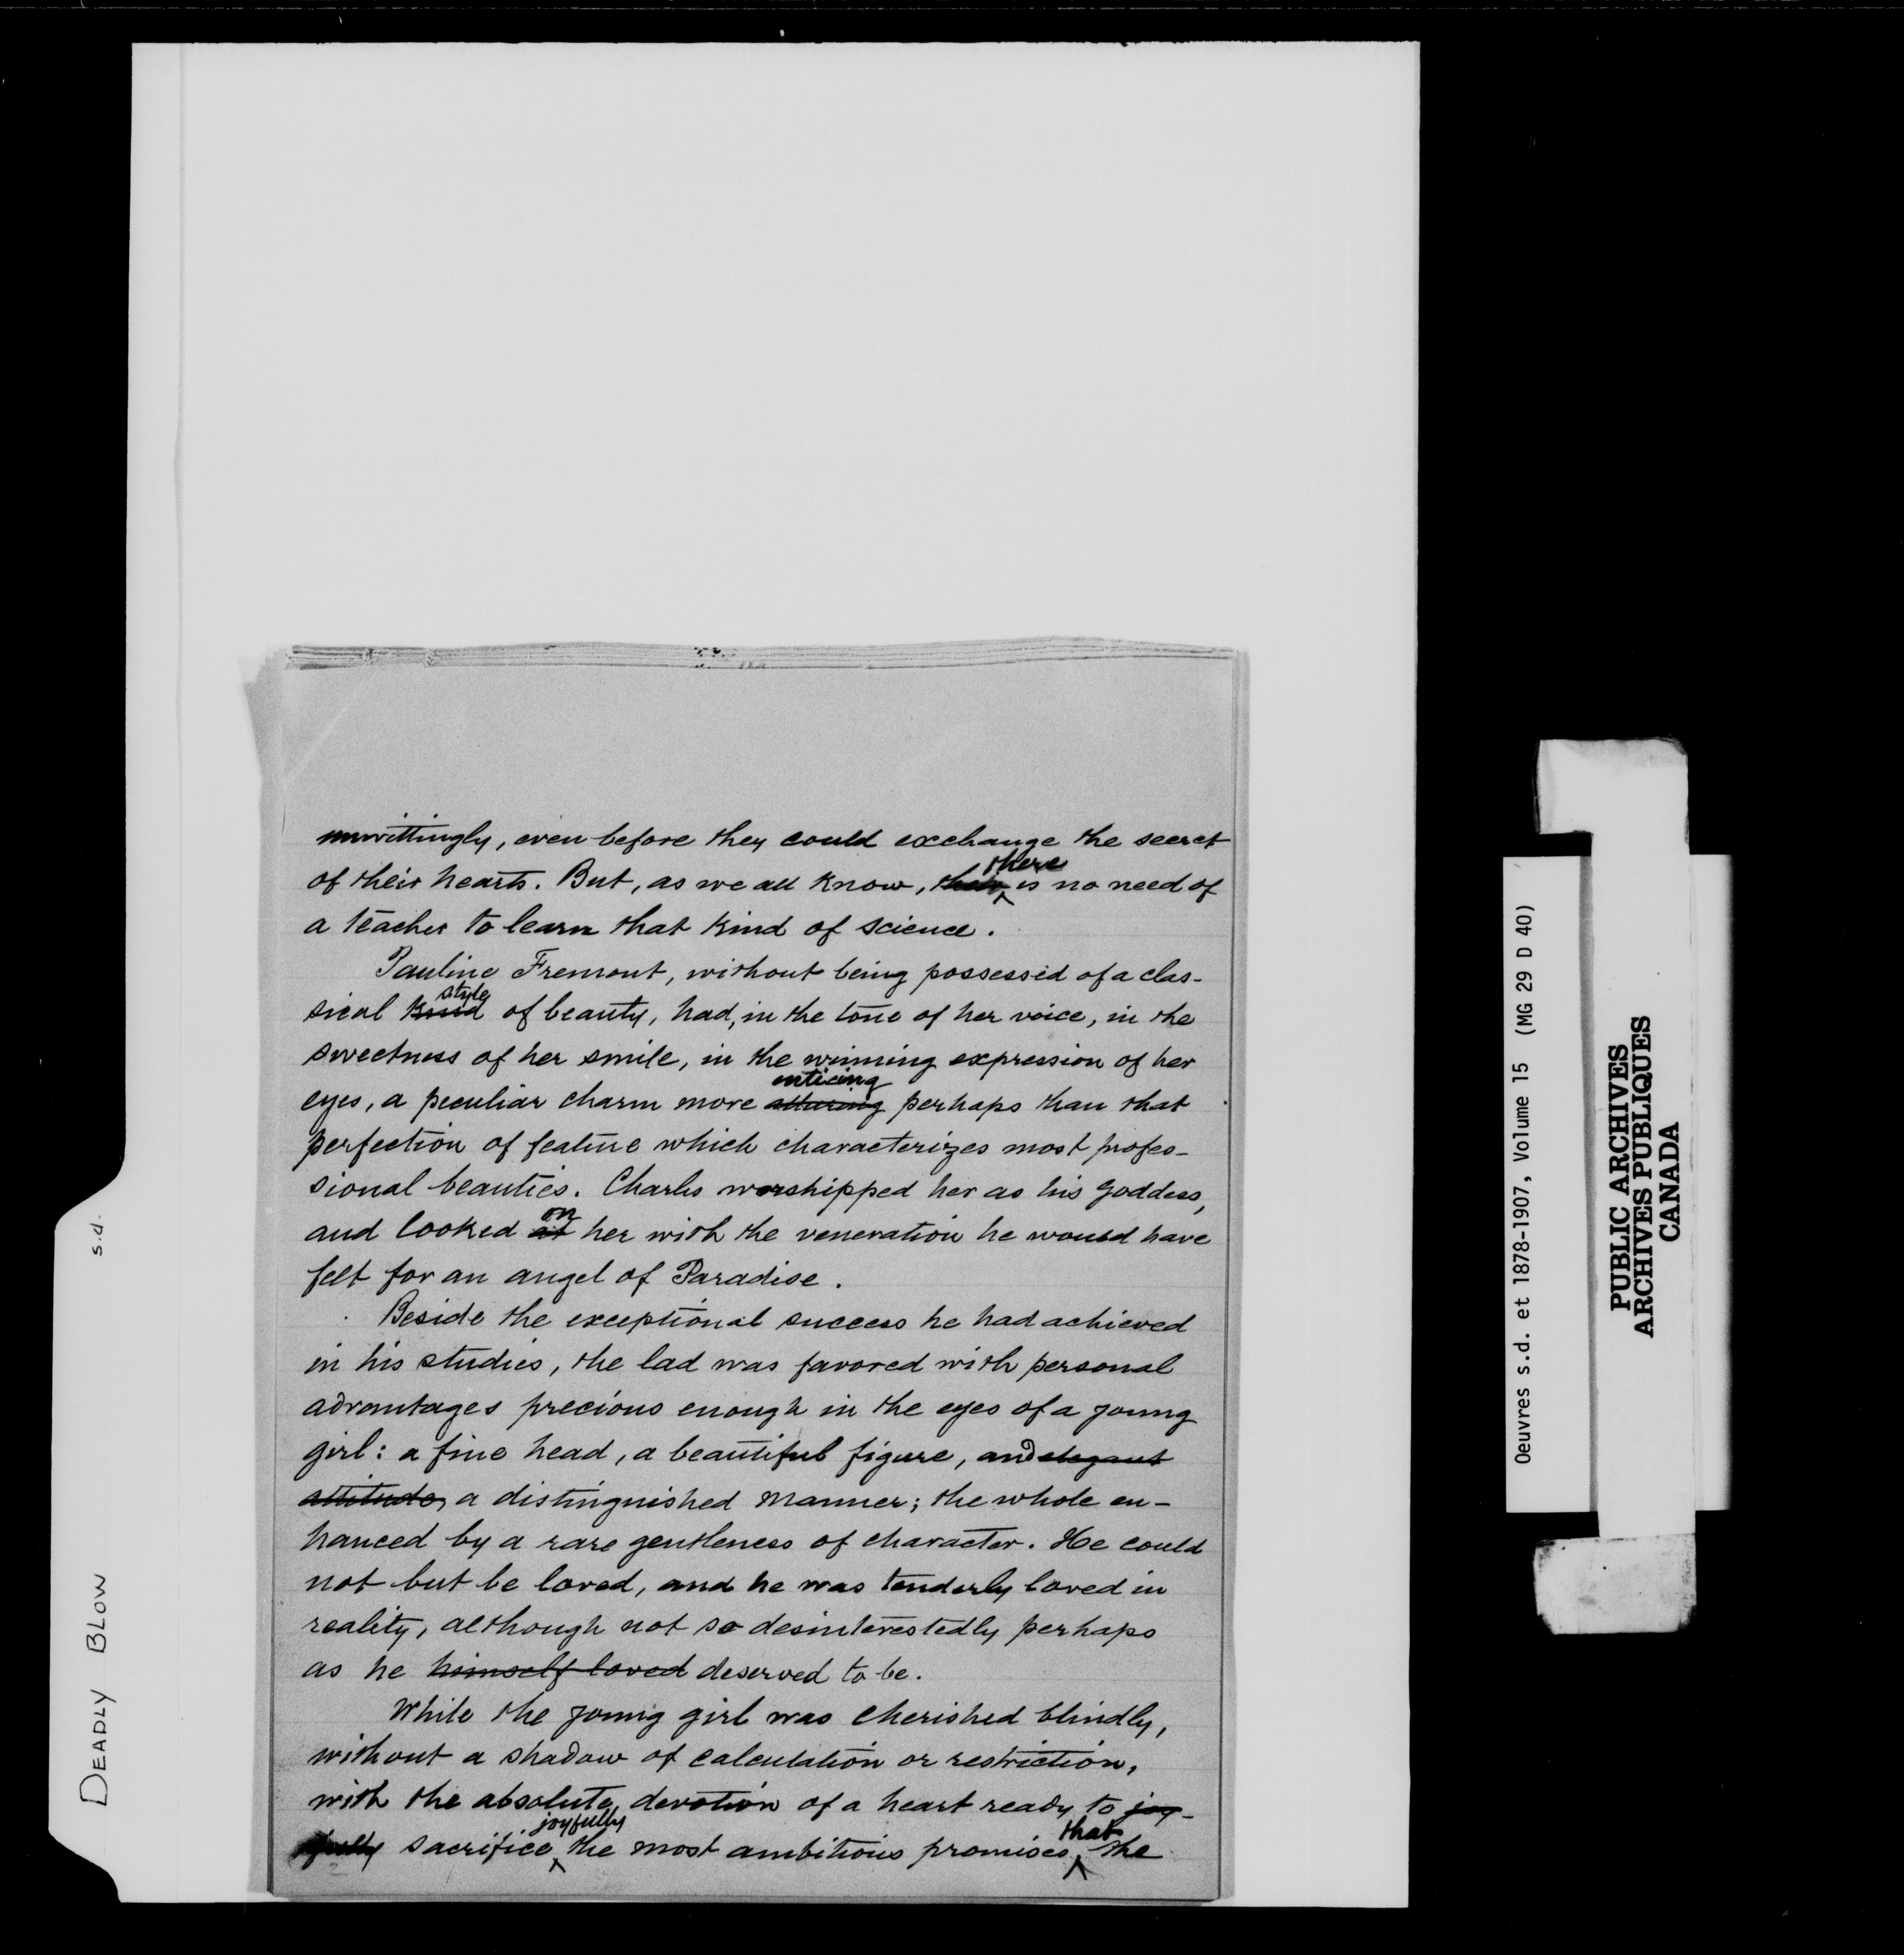 unwittingly, even before they could exchange the secret
there
of their hearts. But, as we all know, their is no need of
a teacher to learn that kind of science.
Pauline Fremont, without being possessed of a clas-
style
sical kind of beauty, had, in the tone of her voice, in the
sweetness of her smile, in the winning expression of her
enticing
eyes, a peculiar charm more alluring perhaps than that
perfection of feature which characterizes most profes-
sional beauties. Charles worshipped her as his goddess,
on
and looked at her with the veneration he would have
felt for an angel of Paradise.
Beside the exceptional success he had achieved
in his studies, the lad was favored with personal
advantages precious enough in the eyes of a young
girl: a fine head, a beautiful figure, and elegant
attitude, a distinguished manner; the whole en-
hanced by a rare gentleness of character. He could
not but be loved, and he was tenderly loved in
reality, although not so desinterestedly perhaps
as he himself loved deserved to be.
While the young girl was cherished blindly,
without a shadow of calculation or restriction,
with the absolute devotion of a heart ready to joy-
joyfully that
fully sacrifice the most ambitious promises the
DEADLY BLOW s.d.
Oeuvres s.d. et 1878-1907, Volume 15 (MG 29 D 40)
PUBLIC ARCHIVES
ARCHIVES PUBLIQUES
CANADA